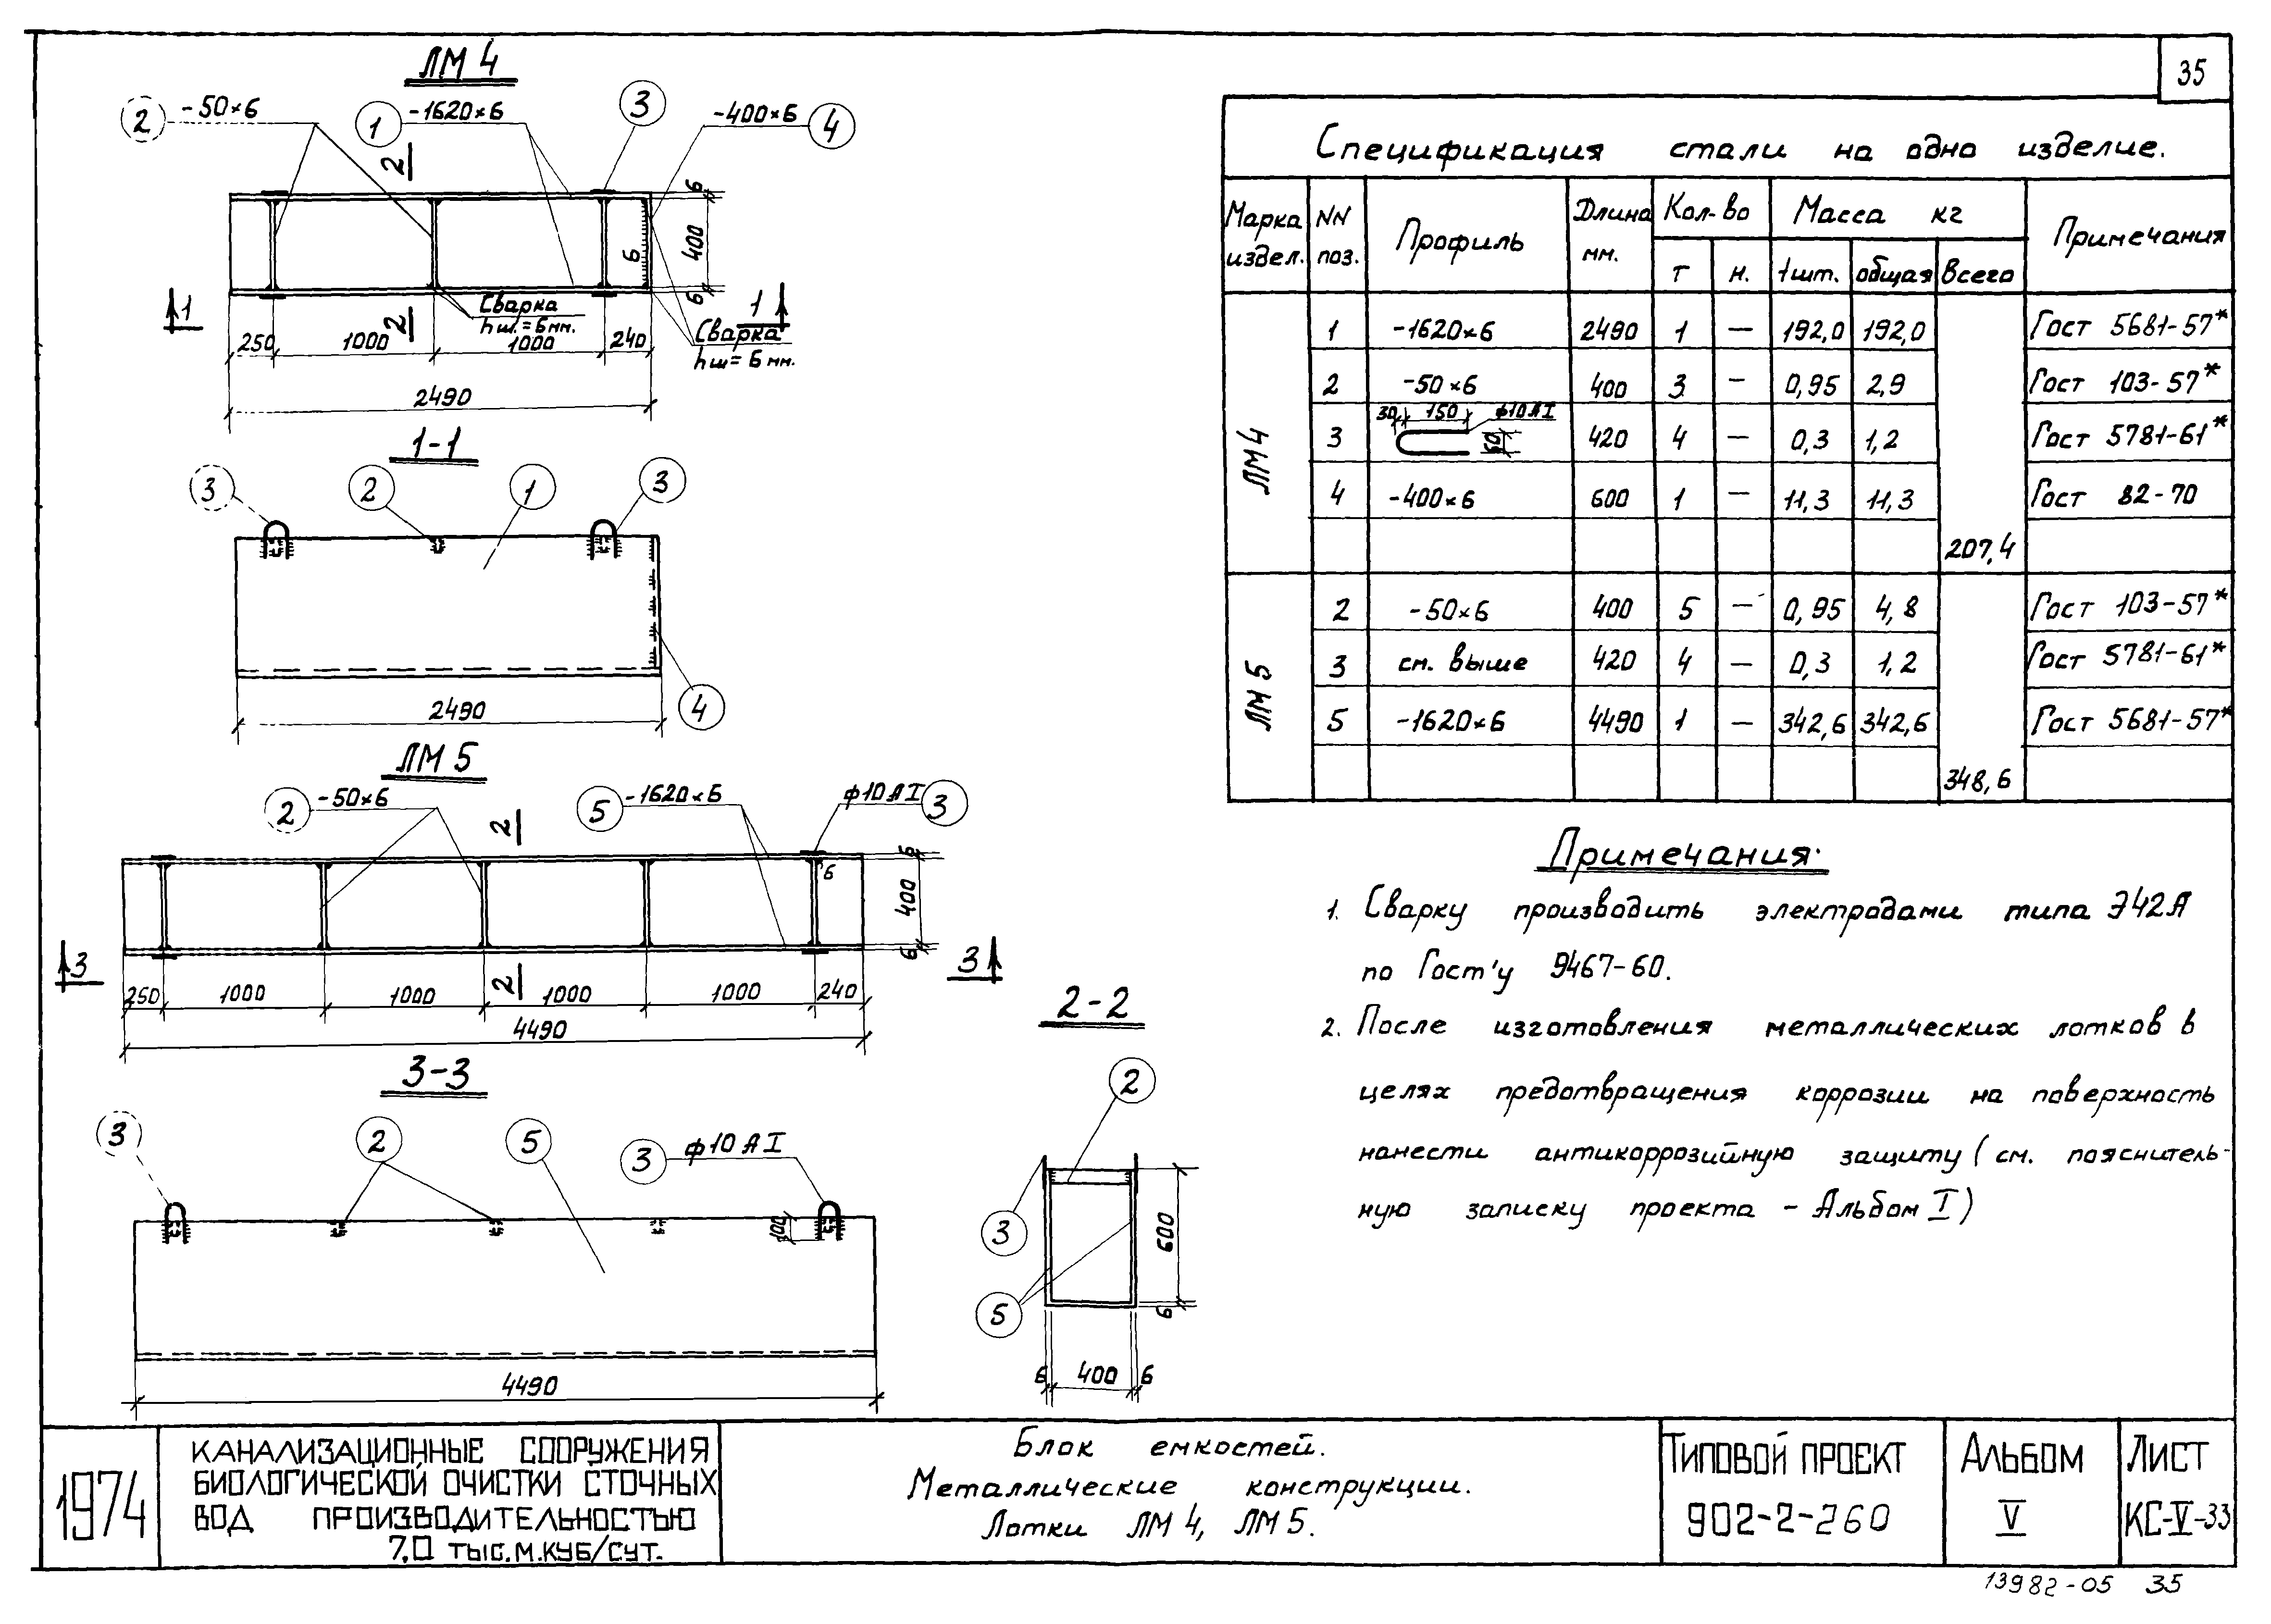 35
ЛМ 4
2 -50×6
1 -1620×6
3
-400×6 4
2
6
400
6
6
1
1
Сварка
hш.=6мм.
2
Сварка
hш=6мм.
250 1000 1000 240
2490
1-1
3 2 1 3
4
2490
ЛМ 5
2 -50×6
5 -1620×6
ф10АI 3
2
6
6
400
6
3
3
2
250 1000 1000 1000 1000 240
4490
3-3
3 2 5 3 ф10АI
100
4490
2-2
2
3
5
600
6
6 400 6
Спецификация стали на одно изделие.
Марка издел. NN поз. Профиль Длина мм. Кол-во Масса кг Примечания
т н. 1шт. общая Всего
ЛМ 4
1 -1620×6 2490 1 — 192,0 192,0 Гост 5681-57*
2 -50×6 400 3 — 0,95 2,9 Гост 103-57*
30 150 ф10АI
3 60 420 4 — 0,3 1,2 Гост 5781-61*
4 -400×6 600 1 — 11,3 11,3 Гост 82-70
207,4
ЛМ 5
2 -50×6 400 5 — 0,95 4,8 Гост 103-57*
3 см. выше 420 4 — 0,3 1,2 Гост 5781-61*
5 -1620×6 4490 1 — 342,6 342,6 Гост 5681-57*
348,6
Примечания.
1. Сварку производить электродами типа Э42А
по Гост'у 9467-60.
2. После изготовления металлических лотков в
целях предотвращения коррозии на поверхность
нанести антикоррозийную защиту (см. пояснитель-
ную записку проекта - Альбом I)
1974
КАНАЛИЗАЦИОННЫЕ СООРУЖЕНИЯ
БИОЛОГИЧЕСКОЙ ОЧИСТКИ СТОЧНЫХ
ВОД ПРОИЗВОДИТЕЛЬНОСТЬЮ
7,0 ТЫС.М.КУБ/СУТ.
Блок емкостей.
Металлические конструкции.
Лотки ЛМ 4, ЛМ 5.
ТИПОВОЙ ПРОЕКТ
902-2-260
АЛЬБОМ
V
ЛИСТ
КС-V-33
13982-05 35